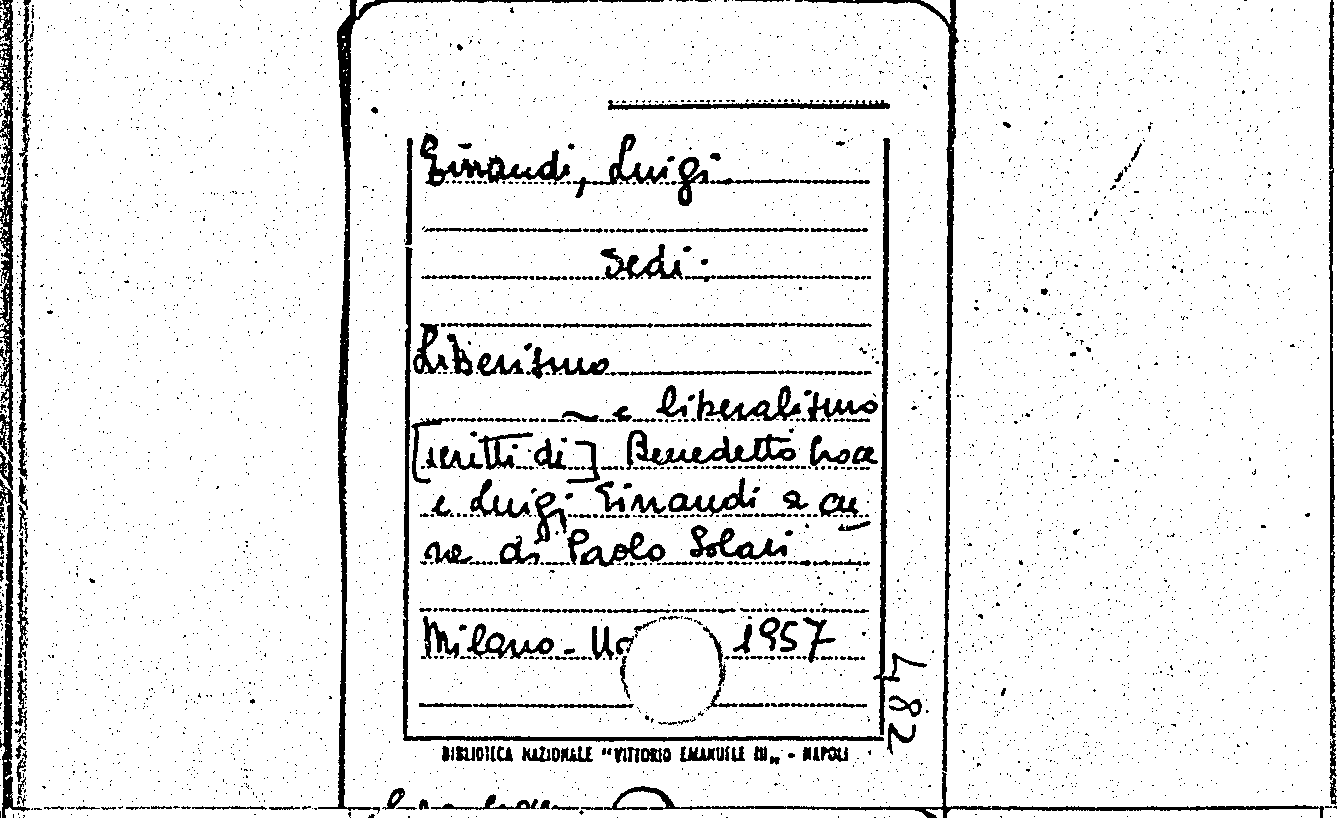 Einaudi, Luigi.
Vedi:
Liberismo
~ e liberalismo
[scritti di] Benedetto Croce
e Luigi Einaudi a cu
ra di Paolo Solari
Milano - 1957
482
BIBLIOTECA NAZIONALE "VITTORIO EMANUELE III" - NAPOLI